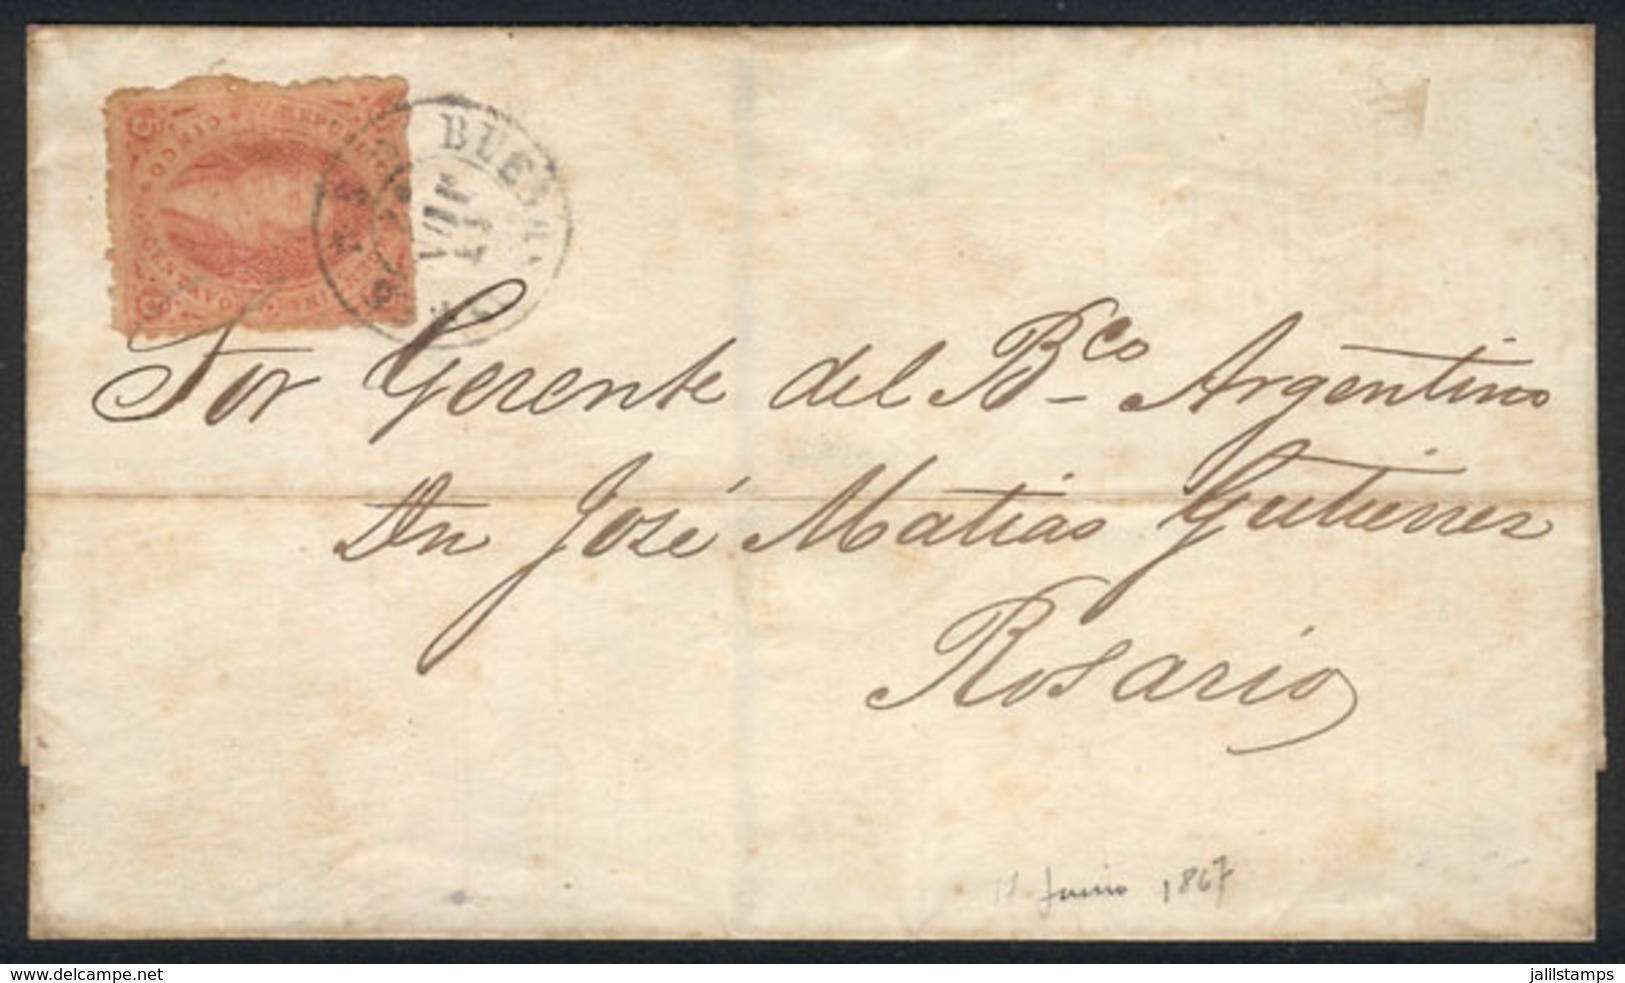 REPUBLICA
CENTAVOS
BUENOS
Sor Gerente del Bco Argentino
Dn José Matias Gutierrez
Rosario
11 Junio 1867
www.delcampe.net
jalilstamps